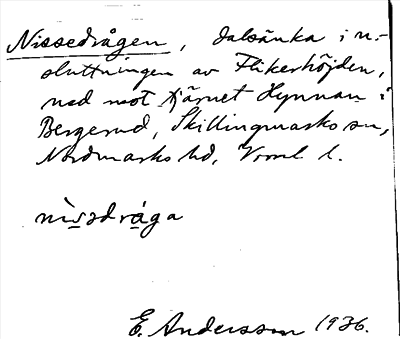 Nissedrågen, dalsänka i n.-
sluttningen av Flikerhöjden,
ned mot tjärnet Hynnan i
Bergerud, Skillingmarks sn,
Nordmarks hd, Vrml l.
nìsədråga
E. Andersson 1936.